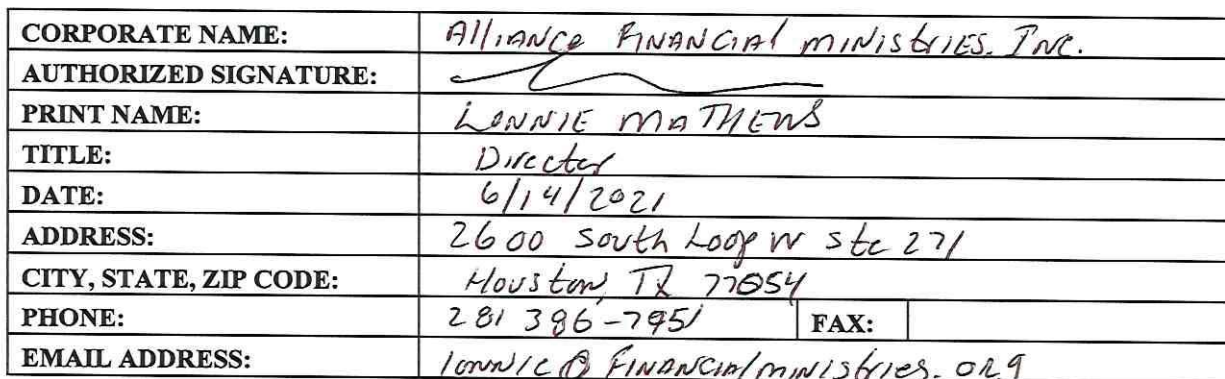 CORPORATE NAME: Alliance Financial Ministries, Inc.
AUTHORIZED SIGNATURE:
PRINT NAME: Lonnie Mathews
TITLE: Director
DATE: 6/14/2021
ADDRESS: 2600 South Loop W Ste 271
CITY, STATE, ZIP CODE: Houston, TX 77054
PHONE: 281 396-7951 FAX:
EMAIL ADDRESS: lonnie@financialministries.org